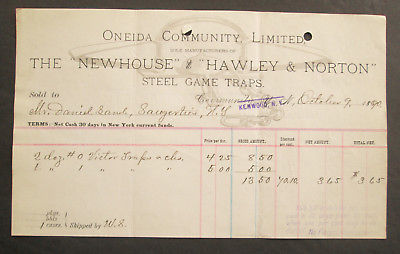 ONEIDA COMMUNITY, LIMITED,
SOLE MANUFACTURERS OF
THE "NEWHOUSE" & "HAWLEY & NORTON"
STEEL GAME TRAPS.
Sold to
Community, N.Y., October 9, 1890
KENWOOD, N.Y.
Mr. Daniel Lamb, Saugerties, N.Y.
TERMS: Net Cash 30 days in New York current funds.
Price per doz. GROSS AMOUNT. Discount per cent. NET AMOUNT. TOTAL NET.
2 doz # 0 Victor Traps & chs. 4.25 8.50
1 " 1 " " " 5.00 5.00
13.50 70.10 3.65 $3.65
pkgs.
bbls.
1 cases. Shipped by W.S.